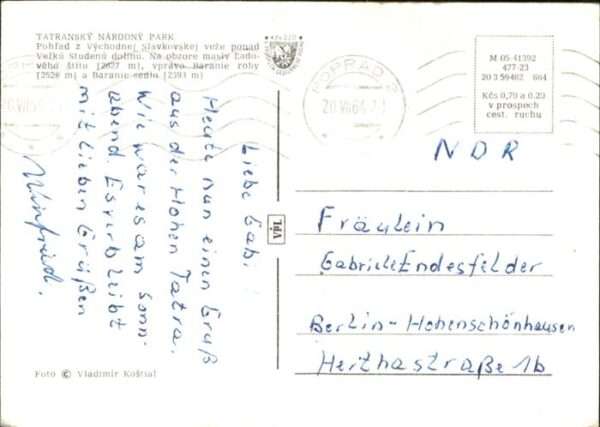 TATRANSKÝ NÁRODNÝ PARK
Pohľad z Východnej Slavkovskej veže ponad
Veľkú Studenú dolinu. Na obzore masív Ľado-
vého štítu [2627 m], vpravo Baranie rohy
[2526 m] a Baranie sedlo [2393 m]
POPRAD 2
20.VII.64
M 05-41392
477-23
20 3 59462 664
Kčs 0,70 a 0.20
v prospech
cest. ruchu
Liebe Gabi!
Heute nun einen Gruß
aus der Hohen Tatra.
Wie war es am Sonn-
abend. Es verbleibt
mit lieben Grüßen
Winfried.
VPL
NDR
Fräulein
Gabriele Endesfelder
Berlin-Hohenschönhausen
Herthastraße 1b
Foto © Vladimír Koštial